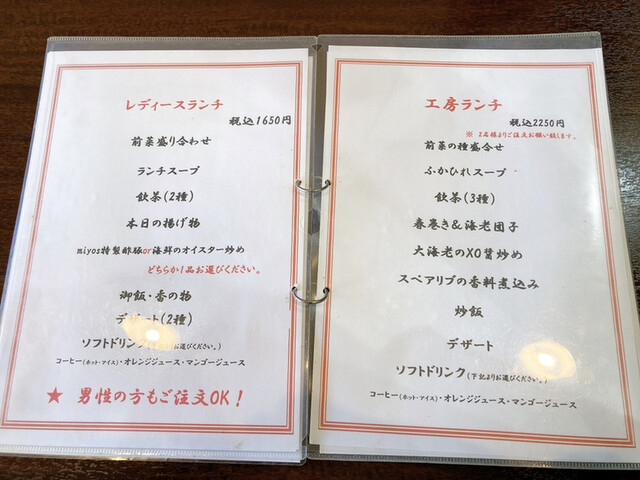 レディースランチ
税込1650円
前菜盛り合わせ
ランチスープ
飲茶(2種)
本日の揚げ物
miyos特製酢豚or海鮮のオイスター炒め
どちらか1品お選びください。
御飯・香の物
デザート(2種)
ソフトドリンク(お選びください。)
コーヒー(ホット・アイス)・オレンジジュース・マンゴージュース
★ 男性の方もご注文OK！
工房ランチ
税込2250円
※ 2名様よりご注文お願い致します。
前菜の種盛合せ
ふかひれスープ
飲茶(3種)
春巻き&海老団子
大海老のXO醤炒め
スペアリブの香料煮込み
炒飯
デザート
ソフトドリンク(下記よりお選びください。)
コーヒー(ホット・アイス)・オレンジジュース・マンゴージュース